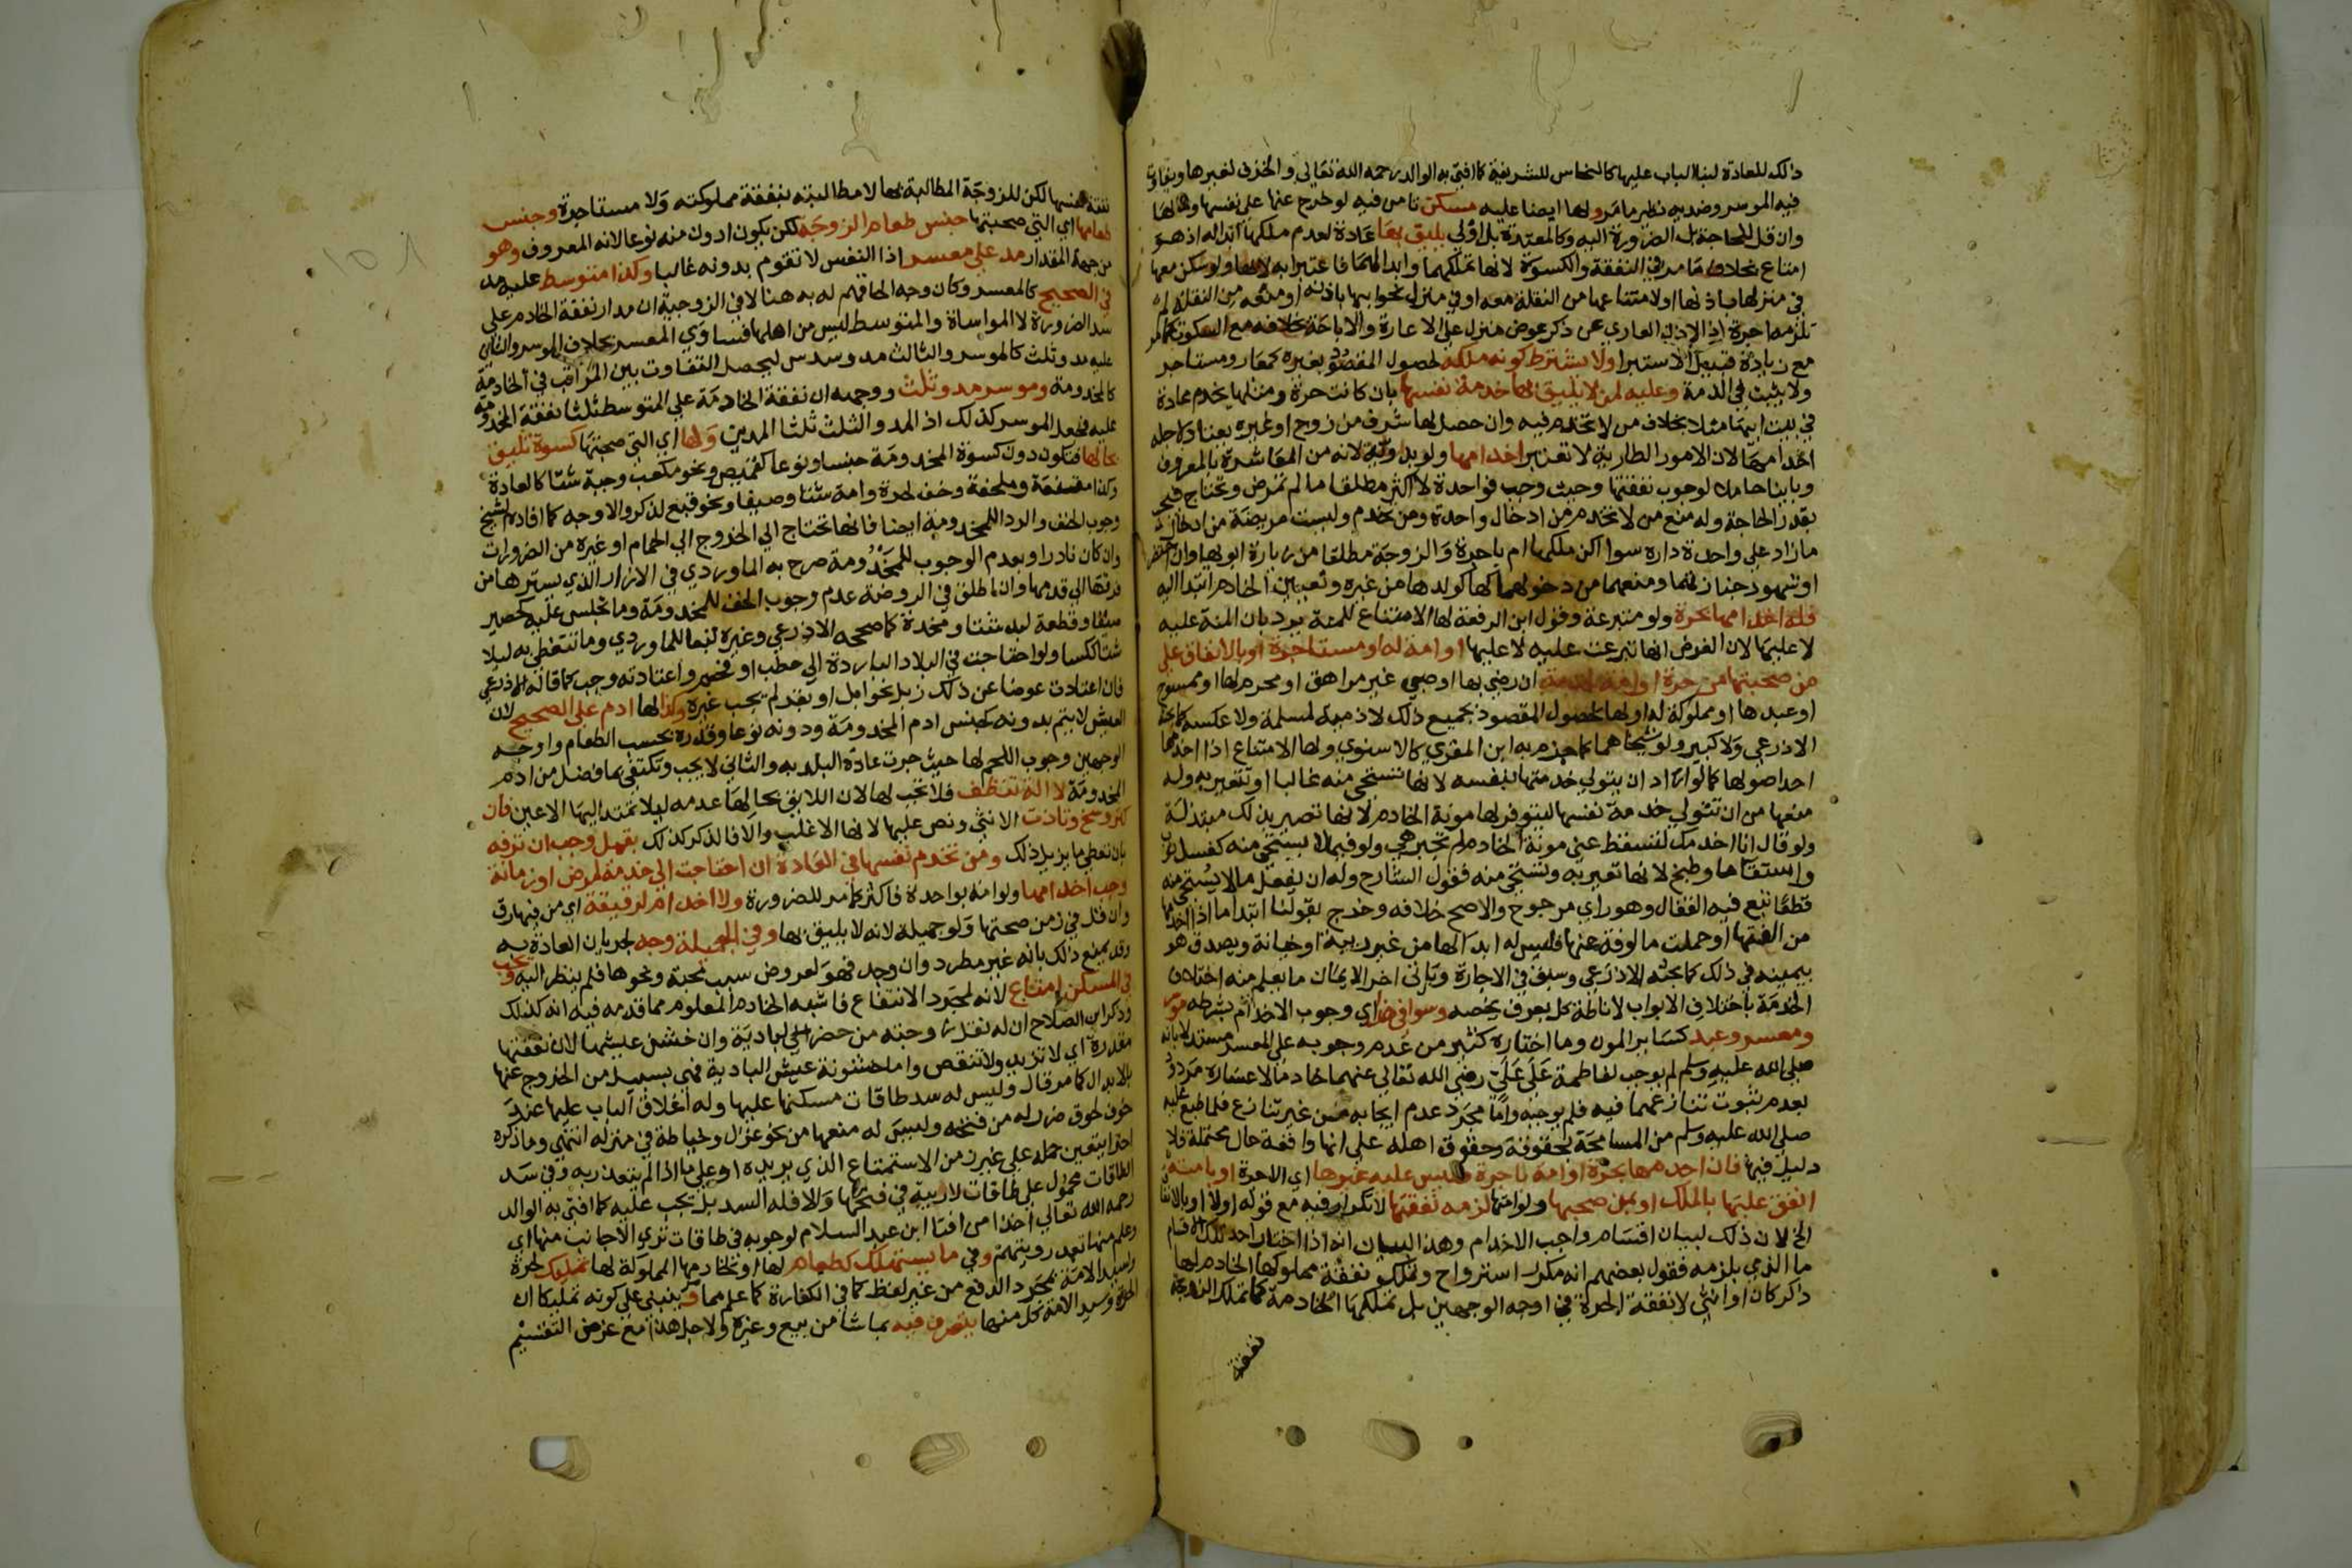 ذلك للعادة لبنا الباب عليها كالنحاس للشريفة كما افتى به الوالد رحمه الله تعالى والخزف لغيرها ويتفاوت
فيه الموسر وضديه نظير ما مر ولها ايضا عليه مسكن تامن فيه لو خرج عنها على نفسها ومالها
وان قل للحاجة بل الضرورة اليه وكالمعتدة بل اولى يليق بها عادة لعدم ملكها ابداله اذ هو
امتاع بخلاف ما مر في النفقة والكسوة لانها تملكهما وابدالهما فاعتبرا به لا بها ولو سكن معها
في منزلها باذنها او لامتناعها من النقلة معه او في منزل نحو ابيها باذنه او منعه من النقلة لم
تلزمه اجرة اذ الاذن العاري عن ذكر عوض منزل على الاعارة والاباحة بخلافه مع السكوت كما مر
مع زيادة قبيل الاستبرا ولا يشترط كونه ملكه لحصول المقصود بغيره كمعار ومستاجر
ولا يثبت في الذمة وعليه لمن لا يليق بها خدمة نفسها بان كانت حرة ومثلها يخدم عادة
في بيت ابيها مثلا بخلاف من لا تخدم فيه وان حصل لها شرف من زوج او غيره يعتاد لاجله
اخدامها لان الامور الطارية لا تعتبر اخدامها ولو بدوية لانه من المعاشرة بالمعروف
وبائنا حاملا لوجوب نفقتها وحيث وجب فواحدة لا اكثر مطلقا ما لم تمرض وتحتاج فيجب
بقدر الحاجة وله منع من لا تخدم من ادخال واحدة ومن تخدم وليست مريضة من ادخال
ما زاد على واحدة داره سوا اكن ملكها ام باجرة والزوجة مطلقا من زيارة ابويها وان احتضرا
او شهود جنازتهما ومنعهما من دخولهما لها كولدها من غيره وتعيين الخادم ابتدا اليه
فله اخدامها بحرة ولو متبرعة وقول ابن الرفعة لها الامتناع للمنة يرد بان المنة عليه
لا عليها لان الفرض انها تبرعت عليه لا عليها او امة له او مستاجرة او بالانفاق على
من صحبتها من حرة او امة لخدمة ان رضي بها او صبي غير مراهق او محرم لها او ممسوح
او عبدها او مملوكة له او لها لحصول المقصود بجميع ذلك لا ذمية لمسلمة ولا عكسه كما بحثه
الاذرعي ولا كبير ولو شيخا هما كما جزم به ابن المقري كالاسنوي ولها الامتناع اذا اخدمها
احد اصولها كما لو اراد ان يتولى خدمتها بنفسه لانها تستحي منه غالبا او تتعير به وله
منعها من ان تتولى خدمة نفسها ليتوفر لها مونة الخادم لانها تصير بذلك مبتذلة
ولو قال انا اخدمك لتسقط عني مونة الخادم لم تجبر هي ولو فيما لا يستحي منه كغسل ثوب
واستقا ما وطبخ لانها تعير به وتستحي منه فقول الشارح وله ان يفعل ما لا يستحي منه
قطعا تبع فيه القفال وهو راي مرجوح والاصح خلافه وخرج بقولنا ابتدا ما اذا اخدمها
من الفتها او حملت مالوفة معها فليس له ابدالها من غير ريبة او خيانة ويصدق هو
بيمينه في ذلك كما بحثه الاذرعي وسبق في الاجارة وياتي اخر الايمان ما يعلم منه اختلاف
الخدمة باختلاف الابواب لاناطة كل بعرف يخصه وسوا في هذا اي وجوب الاخدام بشرطه موسر
ومعسر وعبد كسائر المون وما اختاره كثير من عدم وجوبه على المعسر مستدلا بانه
صلى الله عليه وسلم لم يوجب لفاطمة على علي رضي الله تعالى عنهما خادما لاعساره مردود
بعدم ثبوت تنازعهما فيه فلم يوجبه واما مجرد عدم ايجابه من غير تنازع فلما طبع عليه
صلى الله عليه وسلم من المسامحة بحقوقه وحقوق اهله على انها واقعة حال محتملة فلا
دليل فيها فان اخدمها بحرة او امة باجرة فليس عليه غيرها اي الاجرة او بامته
انفق عليها بالملك او بمن صحبها ولو امتها لزمه نفقتها لا تكرار فيه مع قوله اولا او بالانفاق
الخ لان ذلك لبيان اقسام واجب الاخدام وهذا لبيان انه اذا اختار احد تلك الاقسام
ما الذي يلزمه فقول بعضهم انه مكرر استرواح وتملك نفقة مملوكها الخادم لها
ذكر كان او انثى لا نفقة الحرة في اوجه الوجهين بل تملكها الخادمة كما تملك الزوجة
نفقة
نفقة نفسها لكن للزوجة المطالبة بها لا مطالبته بنفقة مملوكته ولا مستاجرة وجنس
طعامها اي التي صحبتها جنس طعام الزوجة لكن يكون ادون منه نوعا لانه المعروف وهو
من جهة المقدار مد على معسر اذ النفس لا تقوم بدونه غالبا وكذا متوسط عليه مد
في الصحيح كالمعسر وكان وجه الحاقهم له به هنا لا في الزوجية ان مدار نفقة الخادم على
سد الضرورة لا المواساة والمتوسط ليس من اهلها فساوى المعسر بخلاف الموسر والثاني
عليه مد وثلث كالموسر والثالث مد وسدس ليحصل التفاوت بين المراتب في الخادمة
كالمخدومة وموسر مد وثلث ووجهه ان نفقة الخادمة على المتوسط ثلثا نفقة المخدومة
عليه فجعل الموسر كذلك اذ المد والثلث ثلثا المدين ولها اي التي صحبتها كسوة تليق
بحالها فتكون دون كسوة المخدومة جنسا ونوعا كقميص ونحو مكعب وجبة شتا كالعادة
وكذا مقنعة وملحفة وخف لحرة وامة شتا وصيفا ونحو قبع لذكر والاوجه كما افاده الشيخ
وجوب الخف والردا للمخدومة ايضا فانها تحتاج الى الخروج الى الحمام او غيره من الضرورات
وان كان نادرا وبعدم الوجوب للمخدومة صرح به الماوردي في الازار الذي يسترها من
فرقها الى قدمها وان اطلق في الروضة عدم وجوب الخف للمخدومة وما تجلس عليه كحصير
صيفا وقطعة لبد شتا ومخدة كما صححه الاذرعي وغيره تبعا للماوردي وما تتغطى به ليلا
شتا ككسا ولو احتاجت في البلاد الباردة الى حطب او فحم واعتادته وجب كما قاله الاذرعي
فان اعتادت عوضا عن ذلك زبل نحو ابل او بقر لم يجب غيره وكذا لها ادم على الصحيح لان
العيش لا يتم بدونه كجنس ادم المخدومة ودونه نوعا وقدره بحسب الطعام واوجه
الوجهين وجوب اللحم لها حيث جرت عادة البلد به والثاني لا يجب وتكتفي بما فضل من ادم
المخدومة لا الة تنظف فلا تجب لها لان اللائق بحالها عدمه ليلا تمتد اليها الاعين فان
كثر وسخ وتاذت الانثى ونص عليها لانها الاغلب والا فالذكر كذلك بقمل وجب ان ترفه
بان تعطى ما يزيل ذلك ومن تخدم نفسها في العادة ان احتاجت الى خدمة لمرض او زمانة
وجب اخدامها ولو امة بواحدة فاكثر كما مر للضرورة ولا اخدام لرقيقة اي من فيها رق
وان قل في زمن صحتها ولو جميلة لانه لا يليق بها وفي الجميلة وجه لجريان العادة به
وقد يمنع ذلك بانه غير مطرد وان وجد فهو لعروض سبب محبة ونحوها فلم ينظر اليه ويجب
في المسكن امتاع لانه لمجرد الانتفاع فاشبه الخادم المعلوم مما قدمه فيه انه كذلك
وذكر ابن الصلاح ان له نقل زوجته من حضر الى بادية وان خشن عيشها لان نفقتها
مقدرة اي لا تزيد ولا تنقص واما خشونة عيش البادية فهي بسبيل من الخروج عنها
بالابدال كما مر قال وليس له سد طاقات مسكنها عليها وله اغلاق الباب عليها عند
خوف لحوق ضرر له من فتحه وليس له منعها من نحو غزل وخياطة في منزله انتهى وما ذكره
اخرا يتعين حمله على غير زمن الاستمتاع الذي يريده او على ما اذا لم يتعذر به وفي سد
الطاقات محمول على طاقات لا ريبة في فتحها والا فله السد بل يجب عليه كما افتى به الوالد
رحمه الله تعالى اخذا من افتا ابن عبد السلام لوجوبه في طاقات ترى الاجانب منها اي
وعلم منها تعمد رويتهم وفي ما يستهلك كطعام لها او لخادمها المملوكة لها تمليك لحرة
ولسيد الامة بمجرد الدفع من غير لفظ كما في الكفارة كما علم مما مر وينبني على كونه تمليكا ان
الحرة وسيد الامة كل منهما يتصرف فيه بما شا من بيع وغيره ولاجل هذا مع غرض التقسيم